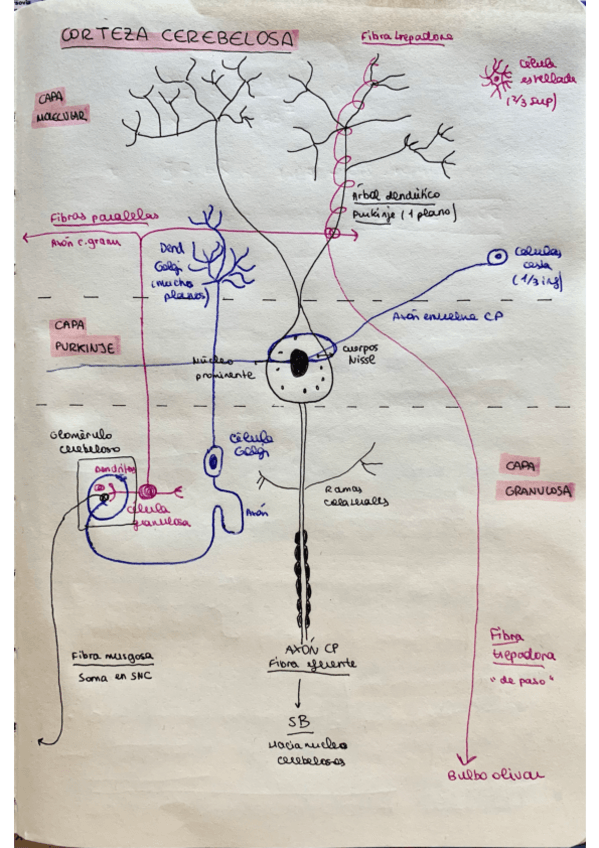 CORTEZA CEREBELOSA
Fibra trepadora
Célula
estrellada
(2/3 sup)
CAPA
MOLECULAR
Árbol dendrítico
Purkinje (1 plano)
Fibras paralelas
Axón c. granu
Dend
Golgi
(muchos
planos)
Células
cesta
(1/3 inf)
Axón envuelve CP
CAPA
PURKINJE
Núcleo
prominente
cuerpos
Nissl
Glomérulo
cerebeloso
Dendritas
Célula
Golgi
Célula
granulosa
Axón
Ramas
colaterales
CAPA
GRANULOSA
Fibra musgosa
Soma en SNC
AXÓN CP
Fibra eferente
SB
Hacia nucleo
cerebelosos
Fibra
trepadora
"de paso"
Bulbo olivar